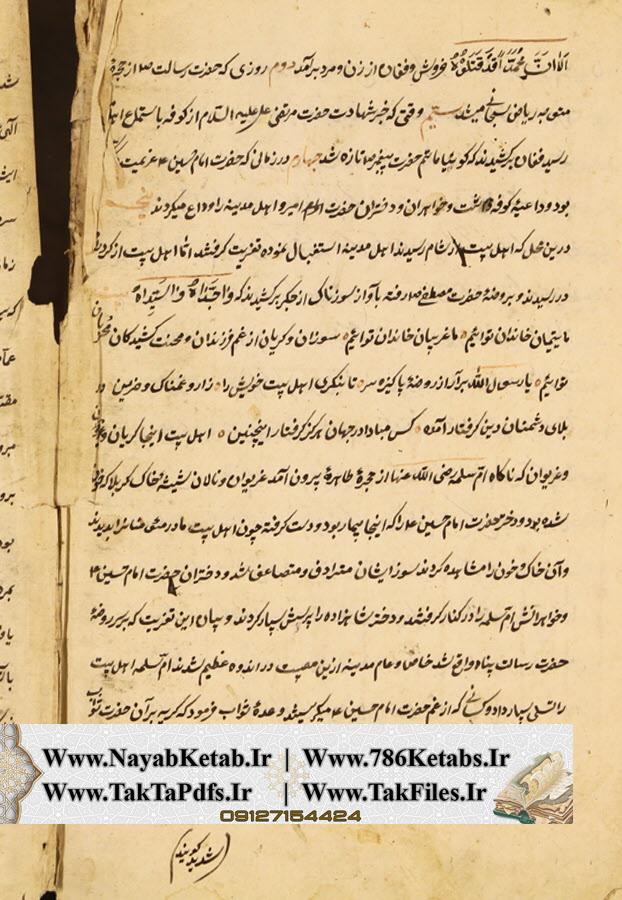 الا ان محمدا قد قتلوه خروش و فغان از زن و مرد برآمد دوم روزی که حضرت رسالت ص از حجره
متوجه ریاض سبحانی میشد سیم وقتی که خبر شهادت حضرت مرتضی علی علیه السلام از کوفه باستماع اهل
رسید فغان برکشیدند که گوییا ماتم حضرت پیغمبر ص تازه شد چهارم در زمانی که حضرت امام حسین ع عزیمت
بود و داعیهٔ کوفه داشت و خواهران و دختران حضرت امیر و اهل مدینه را وداع میکردند پنجم
درین محل که اهل بیت از شام رسیدند اهل مدینه استقبال نموده تعزیت گرفتند اما اهل بیت از گرد
در رسیدند و بروضهٔ حضرت مصطفی ص رفته بآواز سوزناک از جگر برکشیدند که واجداه واسیداه
ما یتیمان خاندان توایم ما غریبان خاندان توایم سوزان و گریان از غم فرزندان و محنت کشیدگان
توایم یا رسول الله برآر از روضهٔ پاکیزه سر تا بنگری اهل بیت خویش را زار و غمناک و حزین در
بلای دشمنان دین گرفتار آمده کس مبادا در جهان هرگز گرفتار اینچنین اهل بیت اینجا گریان
و غریوان که ناگاه ام سلمه رضی الله عنها از حجرهٔ طاهره بیرون آمد غریوان و نالان شیشهٔ خاک کربلا که خون
شده بود و دختر حضرت امام حسین ع را که اینجا بیمار بود دست گرفته چون اهل بیت مادر مؤمنان را بدیدند
و آن خاک خون را مشاهده کردند سوز ایشان مترادف و متضاعف شد و دختران حضرت امام حسین ع
و خواهرانش ام سلمه را در کنار گرفتند و دختر شاهزاده را پرسش بسیار کردند و بیان این تعزیت که بر سر روضهٔ
حضرت رسالت پناه واقع شد خاص و عام مدینه ازین مصیبت در اندوه عظیم شدند ام سلمه اهل بیت
را تسلی بسیار داد و کسانی که از غم حضرت امام حسین ع میگریستند وعدهٔ ثواب فرمود که گریه بر آن حضرت ثواب
Www.NayabKetab.Ir | Www.786Ketabs.Ir
Www.TakTaPdfs.Ir | Www.TakFiles.Ir
09127154424